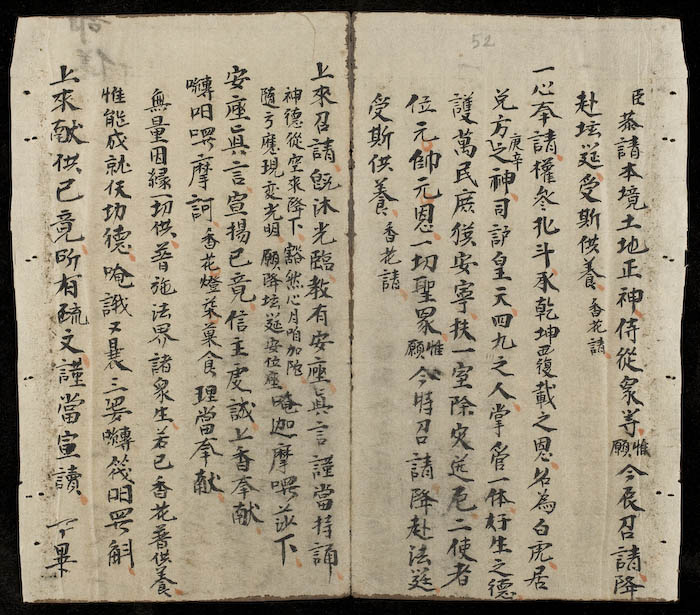 52
臣 恭請本境土地正神侍從眾等惟願今辰召請降
赴坛筵受斯供養 香花請
一心奉請權參北斗承乾坤西復載之恩名為白虎居
兌方庚辛之神司部皇天四九之人掌管一体好生之德
護萬民庶獲安寧扶一室除灾迍厄二使者
位元帥元恩一切聖眾惟願今時召請降赴法筵
受斯供養 香花請
上來召請既沐光臨教有安座真言謹當持誦
神德從空來降下 豁然心月
隨方應現変光明 願降坛筵安位座 唵迦摩㘑莎下
安座真言宣揚已竟信主虔誠上香奉献
囀吅㘑摩訶 香花燈荼菓食 理當奉献
無量因緣一切供普施法界諸眾生若已香花普供養
惟能成就仸功德 唵誐曩三婆囀筏吅斛
上來献供已竟所有疏文謹當宣讀 下畢